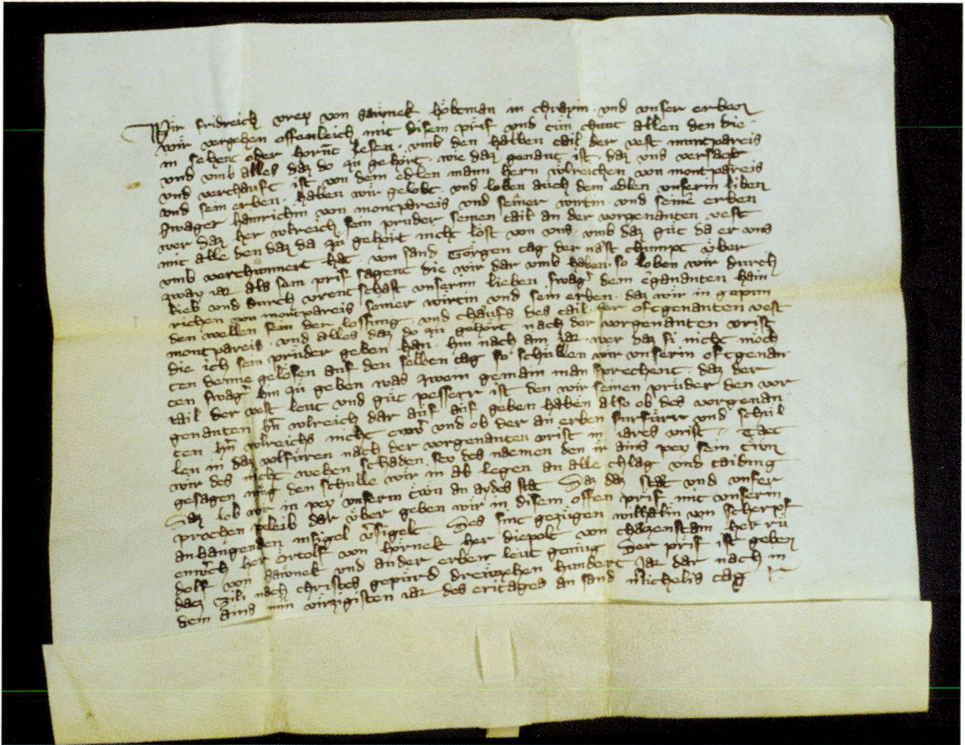 Wir fridreich vrey von Saͤwnek hobtman in chrayn vnd vnser erben
wir vergehen offenleich mit disem prif vnd tuͤn chunt allen den die
in sehent oder horent lesen vmb den halben tail der vest muntpareis
vnd vmb alles daz do zuͤ gehort wie daz genant ist daz vns versaczt
vnd verchauft ist von dem edlen mann hern vlreichen von montpareis
vnd sein erben haben wir gelobt vnd loben auch dem edlen vnserm liben
swager hainrichen von montpareis vnd seiner wirtin vnd seinē erben
wer daz her vlreich sein pruder seinen tail an der vorgenanten vest
mit alle den daz da zuͤ gehort nicht lost von vns vmb daz guͤt da er vns
vmb verchummert hat von sand Goͤrgen tag der naͤst chumpt uͤber
zway iar als sein prif sagent die wir dar vmb haben so loben wir durch
lieb vnd durch vrentschaft vnserm lieben swager dem egenanten hain
richen von montpareis seiner wirtin vnd sein erben daz wir in gepun
den wellen sein der losung vnd chaufs des tail der oftgenanten vest
montpareis vnd alles daz do zuͤ gehort nach der vorgenanten vrist
die ich sein pruder geben han hin nach ain iar wer daz si nicht moch
ten denne gelosen auf den selben tag so schullen wir vnserm oftgenan
ten swager hin zuͤ geben was zwein gemain man sprechent daz der
tail der vest leut vnd guͤt pesserr ist den wir seinen pruder den vor
genanten hern vlreich dar auf geben haben also ob des vorgenan
ten hern vlreichs nicht enwer vnd ob der an erben furfuͤrr vnd schul
len in daz volfuͤren nach der vorgenanten vrist in iares vrist Taet
wir des nicht weken schaden sev des naemen den ir ains pey sein trwn
gesagen mug den schulle wir in ab legen an alle chlag vnd taiding
Daz lob wir in pey vnserm trwn an aydes stat Daz daz staͤt vnd vnser
prochen pleib dar uͤber geben wir in disem offen prif mit vnserm
anhangenden insigel versigelt Des sint gezuͤgen wilhalm von scherpf
enwerch her ortolf von hoͤrnek her diepolt von chaczenstain her ruͤ
dolf von saͤwnek vnd ander erber leut genug Der prif ist geben
dacz Zili nach christes gepuͤrd drewzehen hundert iar dar nach in
dem ains vnd virzigisten iar des eritages an sand michelis tag